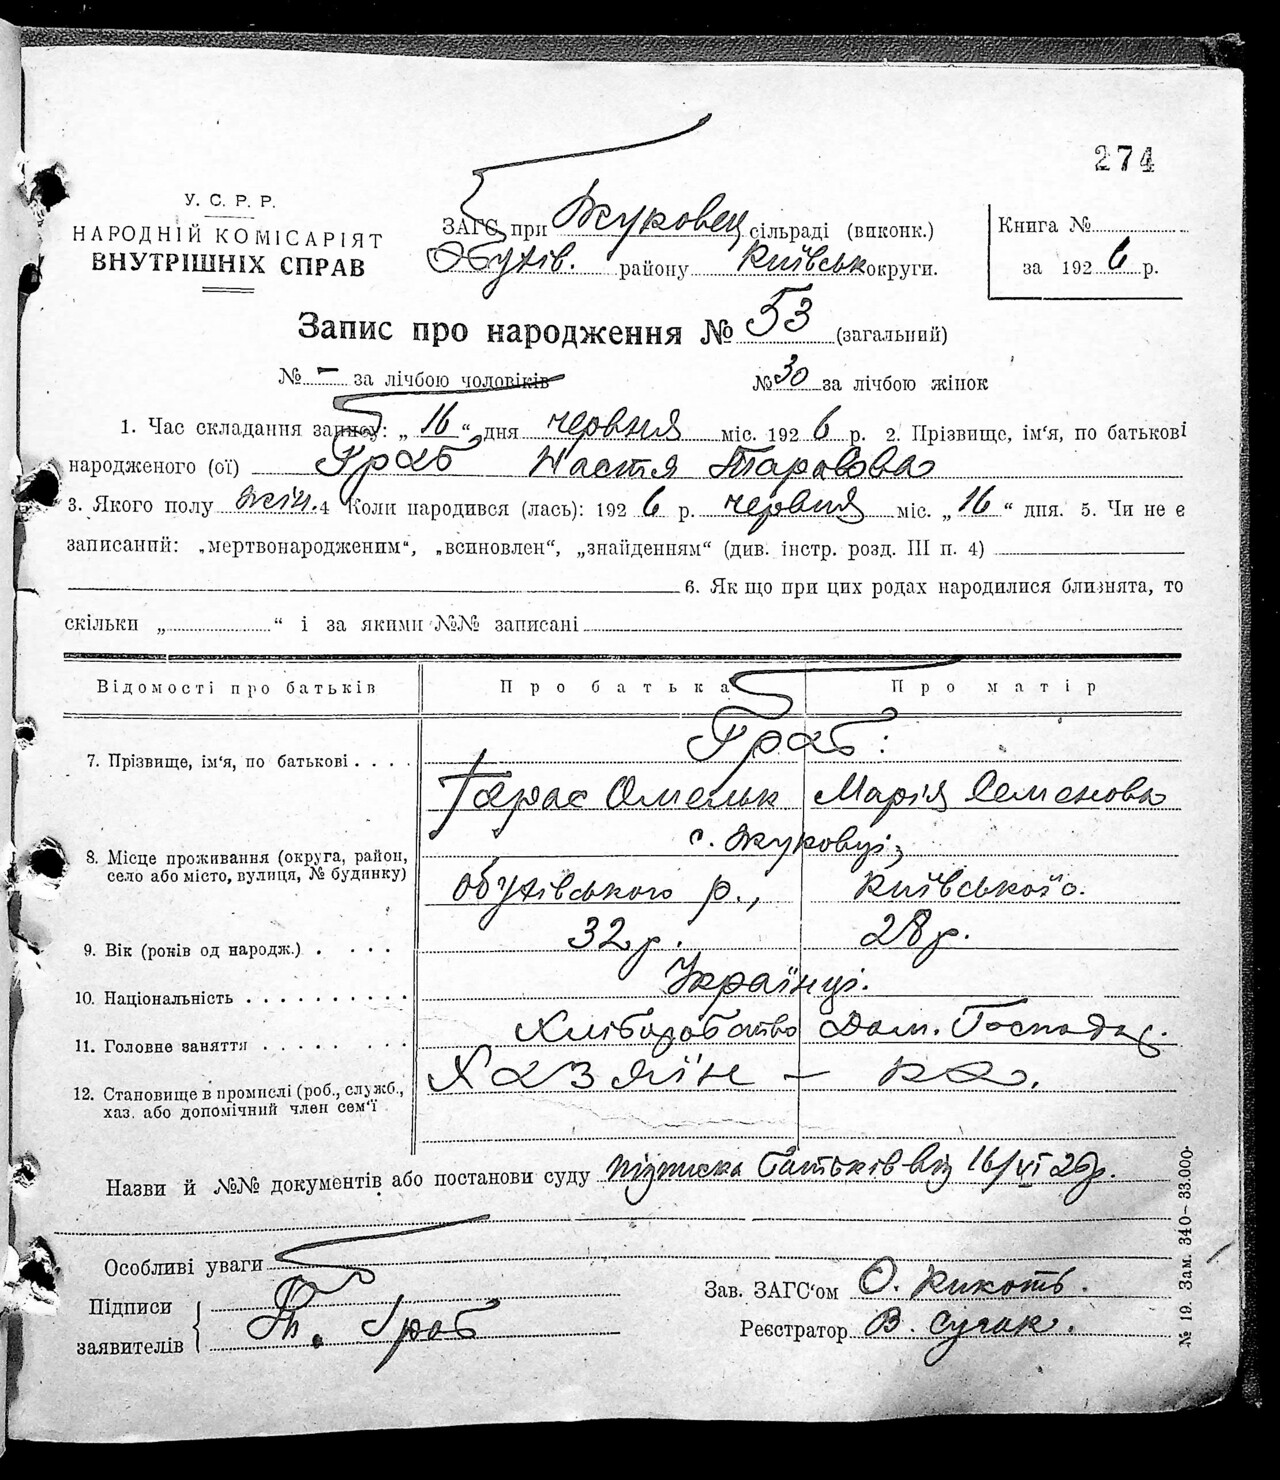 274
У. С. Р. Р.
НАРОДНІЙ КОМІСАРІЯТ
ВНУТРІШНІХ СПРАВ
ЗАГС при Жуковец сільраді (виконк.)
Обухів. району Київськ округи.
Книга №
за 1926 р.
Запис про народження № 53 (загальний)
№ - за лічбою чоловіків №30 за лічбою жінок
1. Час складання запису: „16“ дня червня міс. 1926 р. 2. Прізвище, ім‘я, по батькові
народженого (ої) Граб Настя Тарасова
3. Якого полу жін. 4 Коли народився (лась): 1926 р. червня міс. „16“ дня. 5. Чи не є
записаний: „мертвонародженим“, „всиновлен“, „знайденням“ (див. інстр. розд. III п. 4)
6. Як що при цих родах народилися близнята, то
скільки „ “ і за якими №№ записані
Відомості про батьків Про батька Про матір
Граб:
7. Прізвище, ім‘я, по батькові . . . .
Тарас Омельк Марія Семенова
с. Жуковці,
8. Місце проживання (округа, район,
село або місто, вулиця, № будинку)
обухівського р., Київської о.
9. Вік (років од народж.) . . . . . 32 р. 28 р.
10. Національність . . . . . . . . . . Українці.
11. Головне заняття . . . . . . . . . Хліборобство Дом. Господар.
12. Становище в промислі (роб., служб.,
хаз. або допомічний член сем‘ї
Хазяїн — ка.
Назви й №№ документів або постанови суду підписка батьків від 16/VI 26 р.
Особливі уваги
Підписи
заявителів
Т. Граб
Зав. ЗАГС‘ом О. Кикоть.
Реєстратор В. Сучак.
№ 19. Зам. 340—33.000·